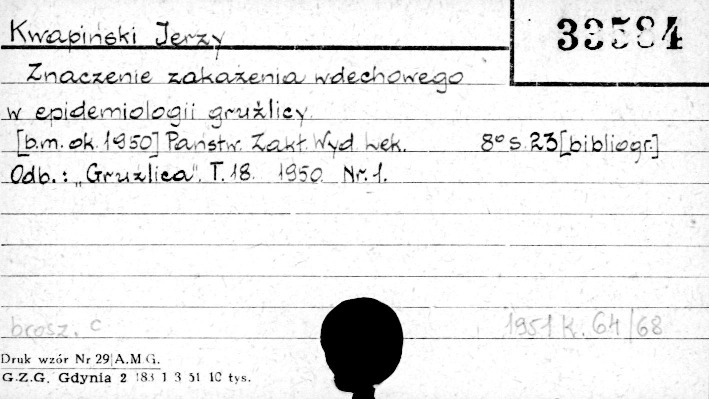 Kwapiński Jerzy
33584
Znaczenie zakażenia wdechowego
w epidemiologii gruźlicy.
[b.m. ok. 1950] Państw. Zakł. Wyd. Lek. 8° s. 23 [bibliogr.]
Odb.: „Gruźlica". T. 18. 1950. Nr. 1.
brosz. c
1951 K. 64/68
Druk wzór Nr 29 A.M.G.
G.Z.G. Gdynia 2 183 1 3 51 10 tys.